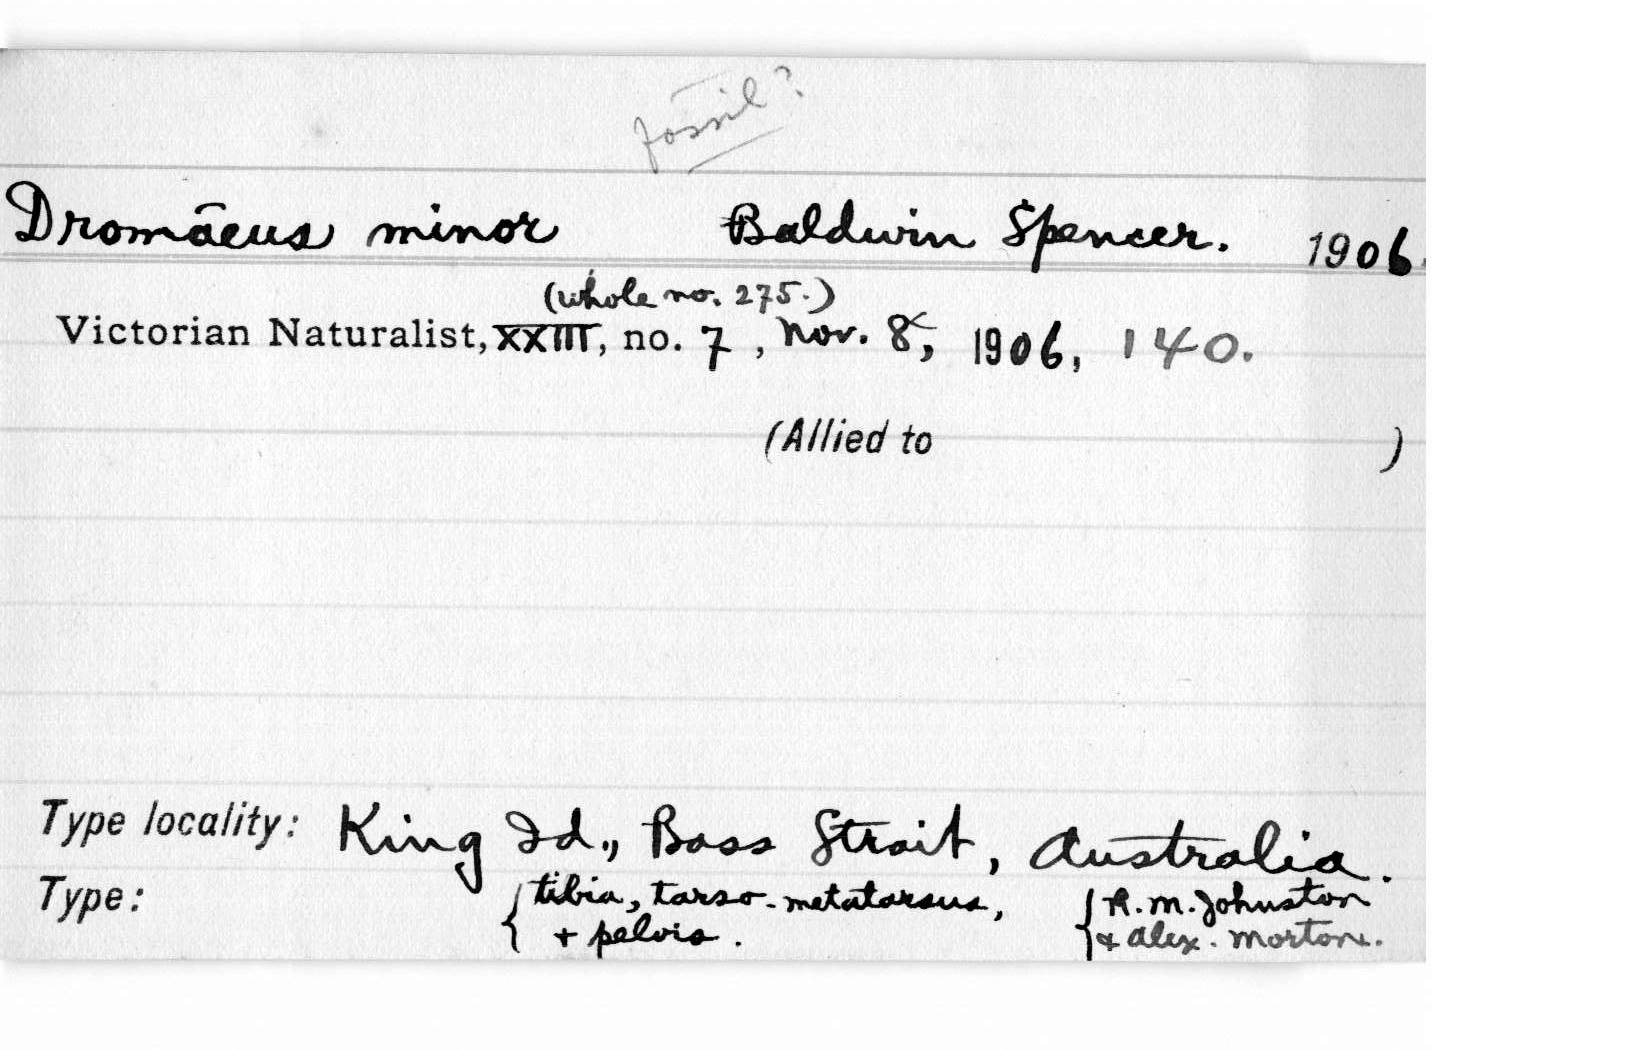 fossil?
Dromāeus minor Baldwin Spencer. 1906.
(whole no. 275.)
Victorian Naturalist, XXIII, no. 7, Nov. 8, 1906, 140.
(Allied to )
Type locality: King Id., Bass Strait, Australia.
Type: { tibia, tarso-metatarsus, { R. M. Johnston
+ pelvis. & Alex. Morton.